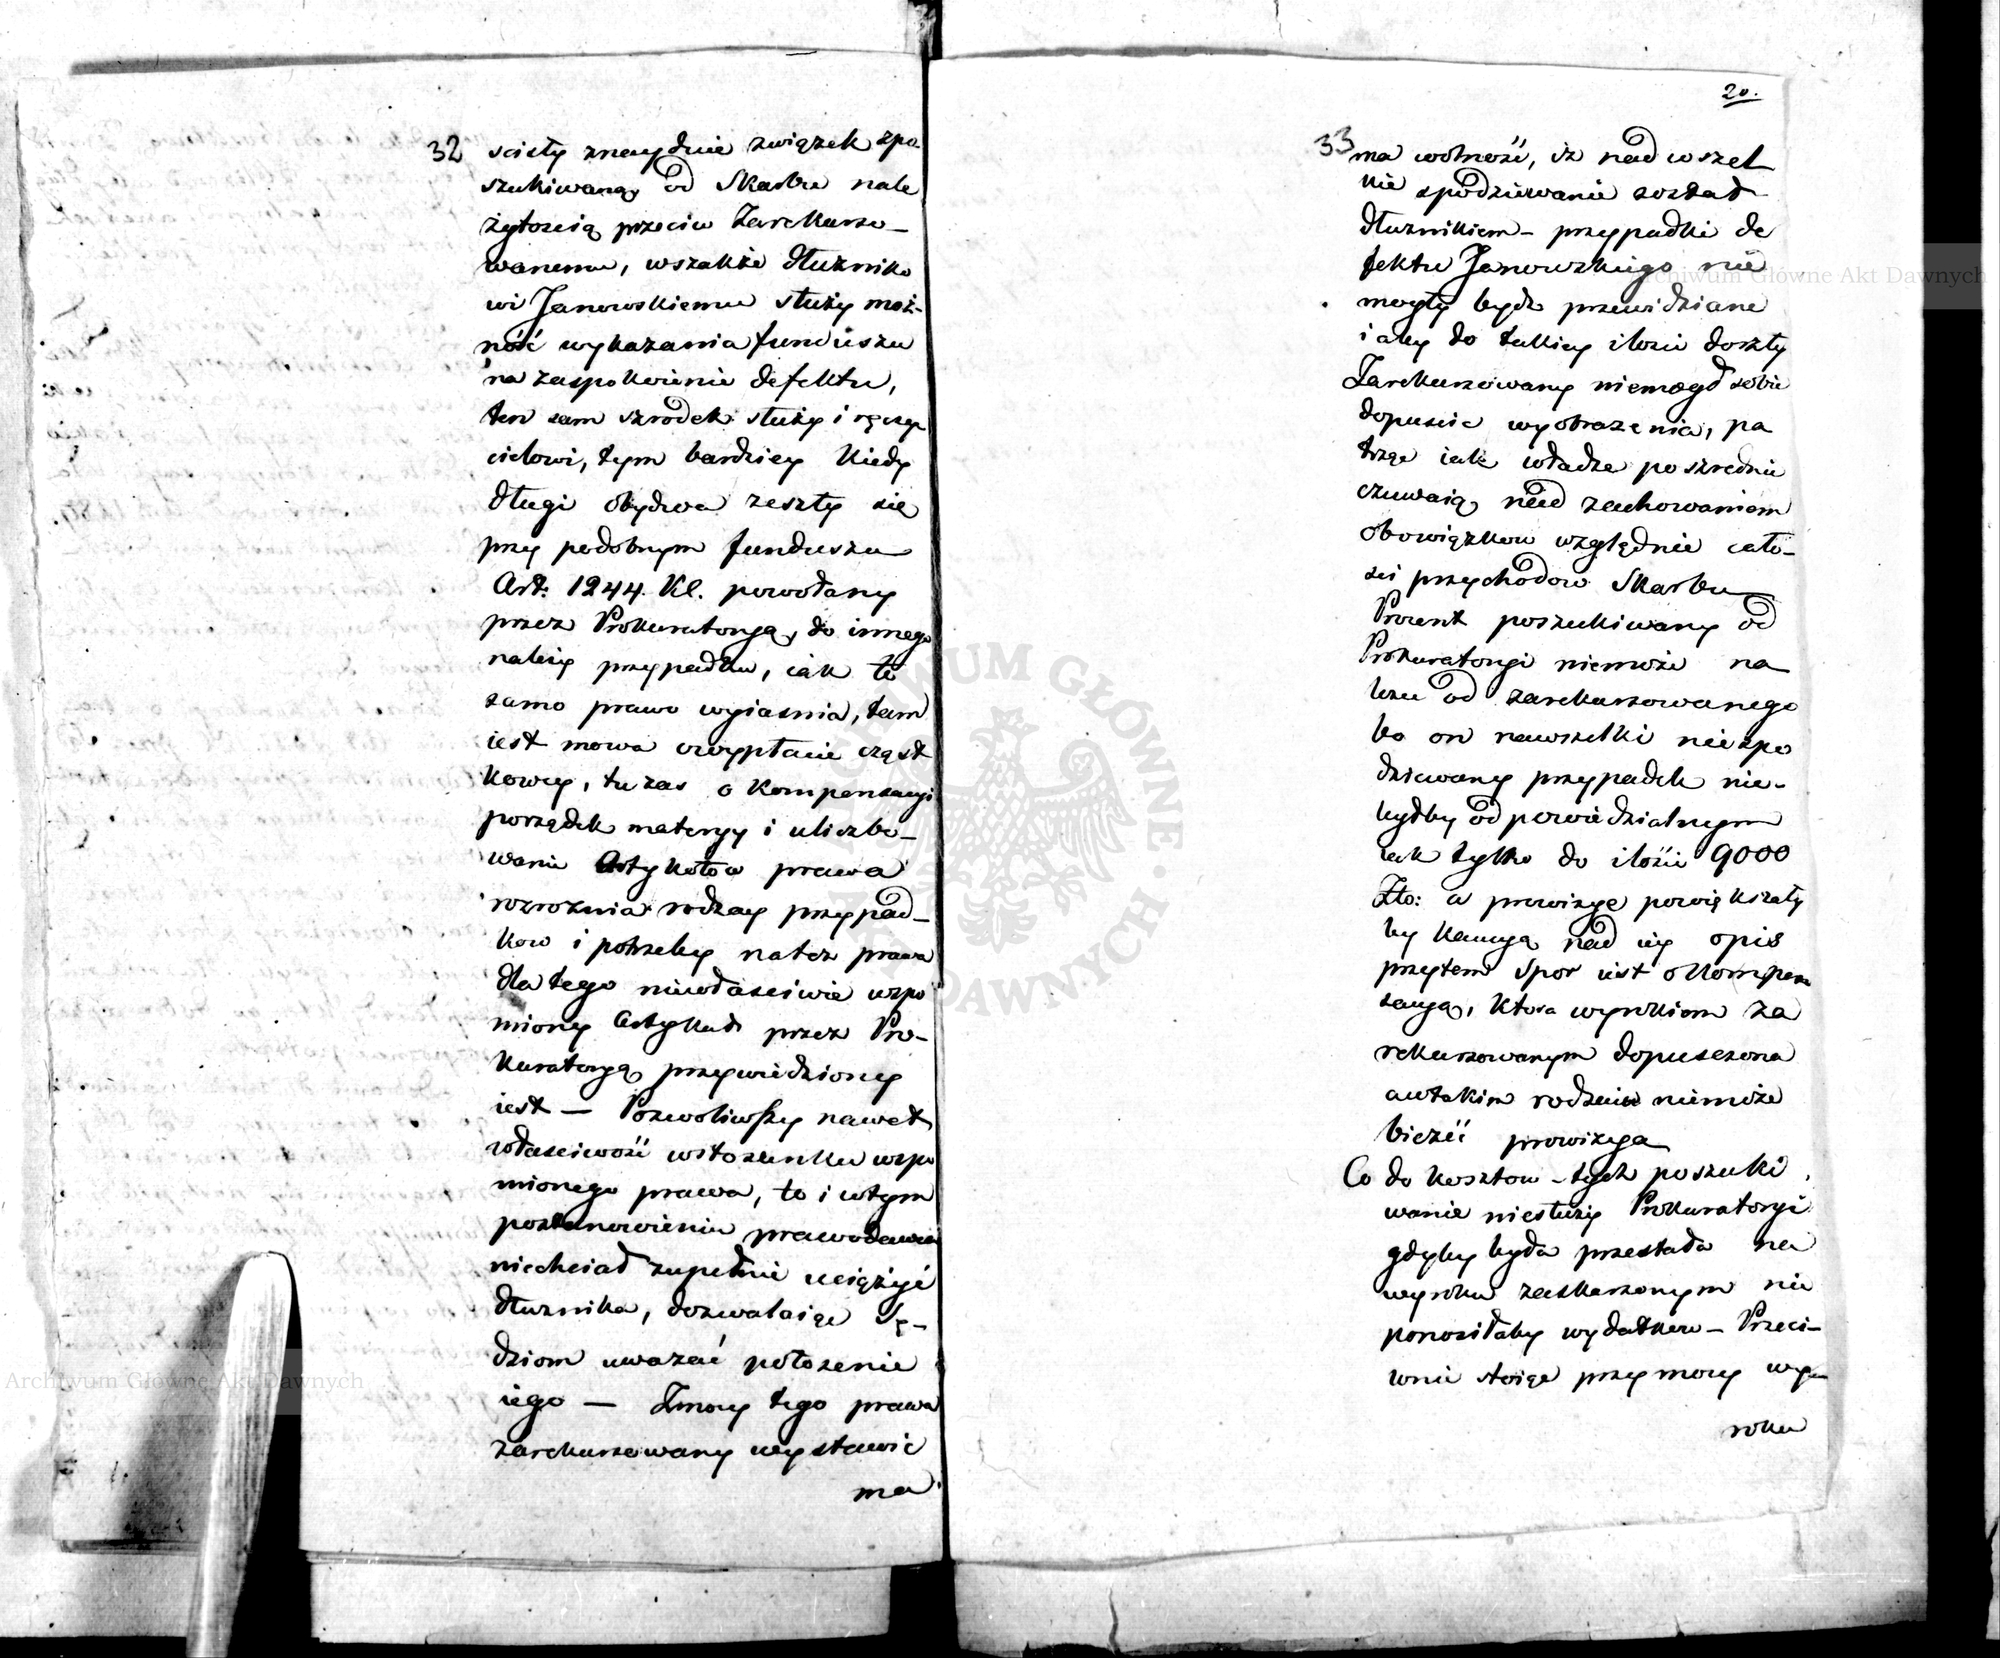 32
scisły znayduie związek zpo
szukiwaną od Skarbu nale
żytoscią przeciw Zarekurso-
wanemu, wszakże dłużniko
wi Janowskiemu służy moż-
ność wykazania funduszu
na zaspokoienie defektu,
ten sam szrodek służy i ręczy
cielowi, tym bardziey kiedy
długi obydwa zeszły się
przy podobnym funduszu
Art: 1244. Kl. powołany
przez Prokuratoryą, do innego
należy przypadku, iak to
samo prawo wyiasnia, tam
iest mowa owypłacie cząst
kowey, tu zas o kompensacyi
porządek materyy i uliczbo-
wanie Artykołow prawa
rozroznia rodzay przypad-
kow i potrzeby natez prawa
dla tego niewłasciwie wzpo
miony Artykuł przez Pro-
kuratoryą przywiedziony
iest — Pozwoliwszy nawet
własciwość wstosunku wzpo
mionego prawa, to i wtym
postanowieniu prawodawca
niechciał zupełnie uciążyć
dłuznika, dozwalaiąc Sę-
dziom uwazać połozenie
iego — Zmocy tego prawa
zarekursowany wystawić
ma
20.
33
ma wolność, iz nad wszel
kie spodziewanie zozdał
dłuznikiem - przypadki de
fektu Janowskiego nie
mogły bydz przewidziane
i aby do takiey ilosci doszły
Zarekursowany niemogł sobie
dopuscic wyobrazenia, pa
trząc iak władze poszrednie
czuwaią nad zachowaniem
obowiązkow względnie cało-
sci przychodow Skarbu
Procent poszukiwany od
Prokuratoryi niemoże na
lezec od zarekursowanego
bo on nawszelki niezpo
dziewany przypadek nie-
byłby odpowiedzialnym
iak tylko do ilości 9000
Zło: a prowizye powiększały
by kaucyą nad iey opis
przytem spor iest o kompen
sacyą, ktora wyrokiem za
rekursowanym dopuszczona
awtakim rodzaiu niemoże
bieżéć prowizya
Co do kosztow - tych poszuki
wanie niesłuży Prokuratoryi
gdyby była przestała na
wyroku zaskarzonym nie
ponosiłaby wydatkow - Przeci-
wnie stoiąc przy mocy wy-
roku
Archiwum Główne Akt Dawnych
Archiwum Główne Akt Dawnych
ARCHIWUM GŁÓWNE AKT DAWNYCH